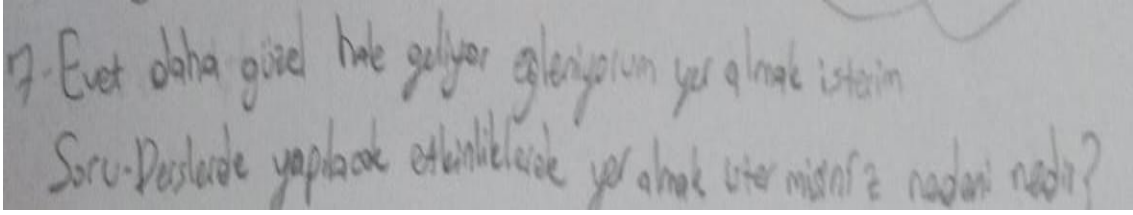 7-Evet daha güzel hale geliyor eğleniyorum yer almak isterim
Soru-Derslerde yapılacak etkinliklerde yer almak ister misiniz nedeni nedir?